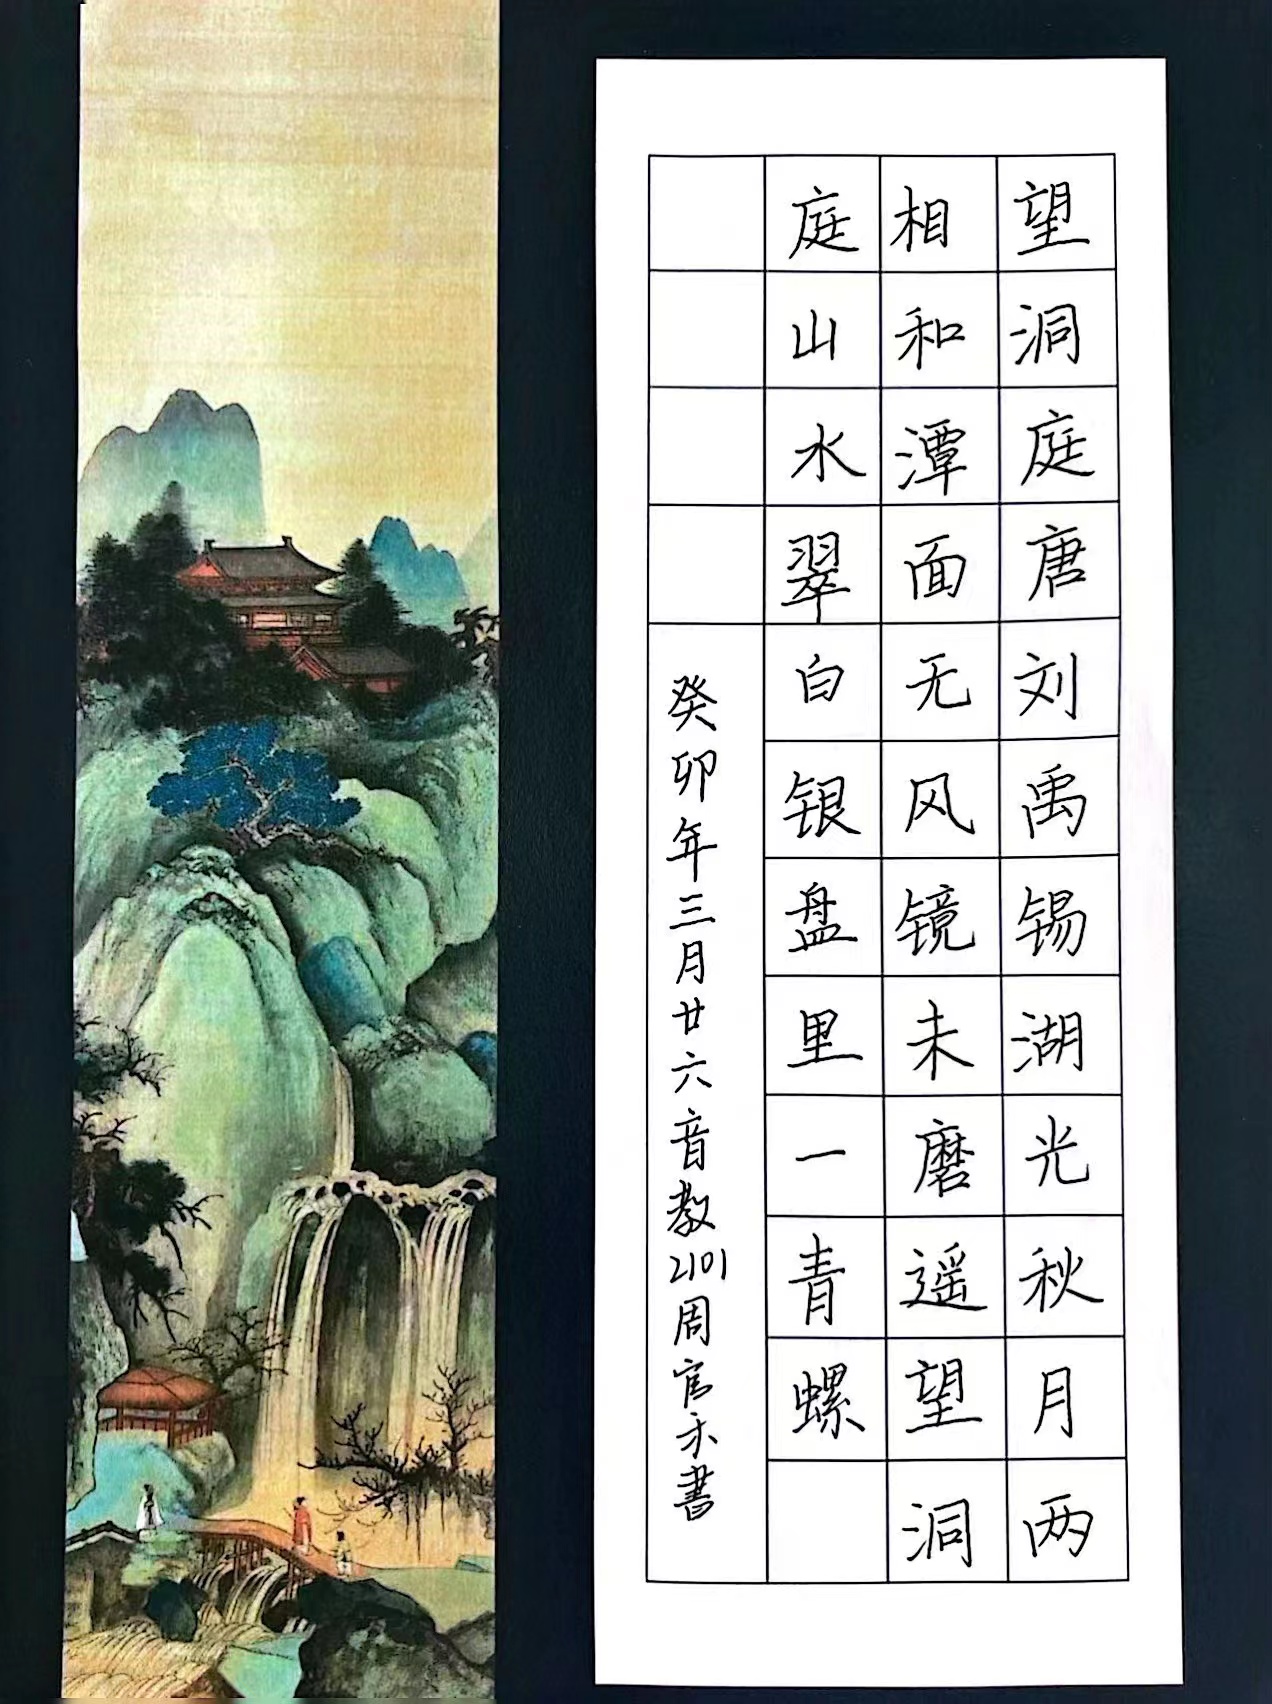 望洞庭唐刘禹锡湖光秋月两
相和潭面无风镜未磨遥望洞
庭山水翠白银盘里一青螺
癸卯年三月廿六音教2101周官示書